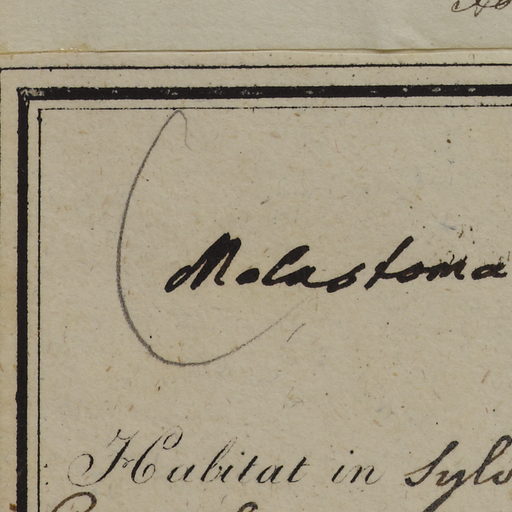 Melastoma
Habitat in Sylv